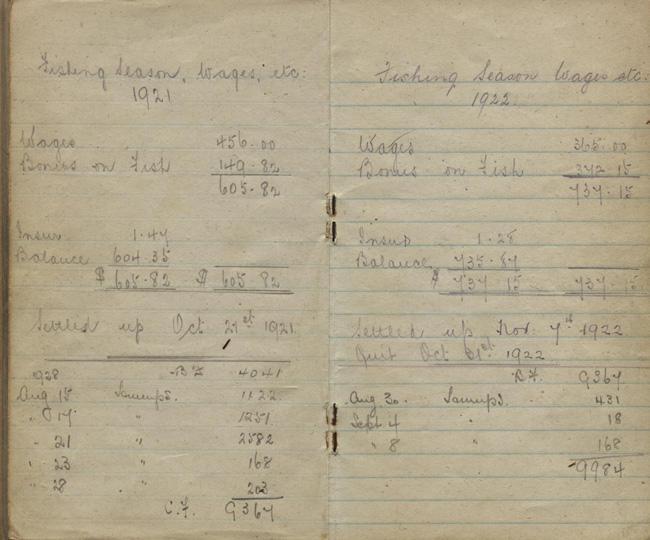 Fishing Season, Wages, etc:
1921
Wages 456.00
Bonus on Fish 149.82
605.82
Insur 1.47
Balance 604.35
$ 605.82 $ 605 82
Settled up Oct 21st 1921
1928 B.F. 4041
Aug 15 1122
" 17 " 1251
" 21 " 2582
" 23 " 168
" 28 " 203
C.F. 9367
Fishing Season Wages etc:
1922
Wages 365.00
Bonus on Fish 372.15
737.15
Insur 1.28
Balance 735.87
$ 737 15 737 15
Settled up Nov. 7th 1922
Quit Oct 31st 1922
B.F. 9367
Aug 30 431
Sept 4 " 18
" 8 " 168
9984